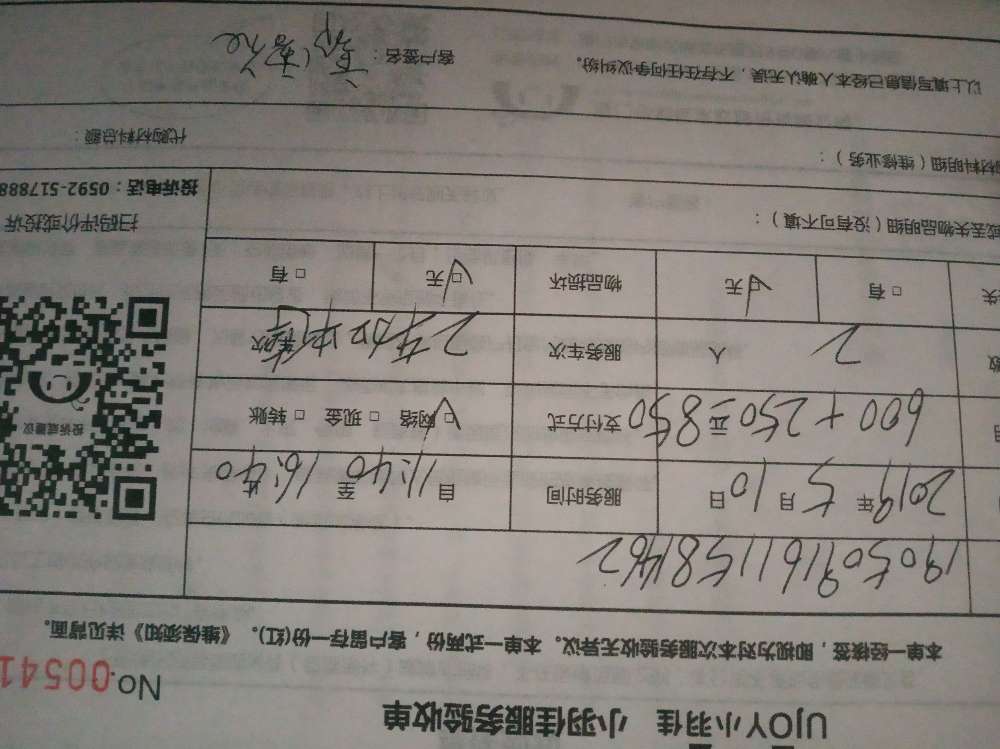 UJOY小羽佳 小羽佳服务验收单
No. 00541
本单一经核签，即视为对本次服务验收无异议。本单一式两份，客户留存一份(红)。《维保须知》详见背面。
1905091611581462
2019年5月10日 服务时间 自11:40至16:40
600+250=850元 支付方式 ☑网络 □现金 □转账
2人 服务车次 2车
□有 ☑无 物品损坏 ☑无 □有
或丢失物品明细（没有可不填）：
扫码评价或投诉
投诉电话：0592-517888
投诉或建议
材料明细（维修业务）：
代购材料总额：
以上填写信息已经本人确认无误，不存在任何争议纠纷。 客户签名：